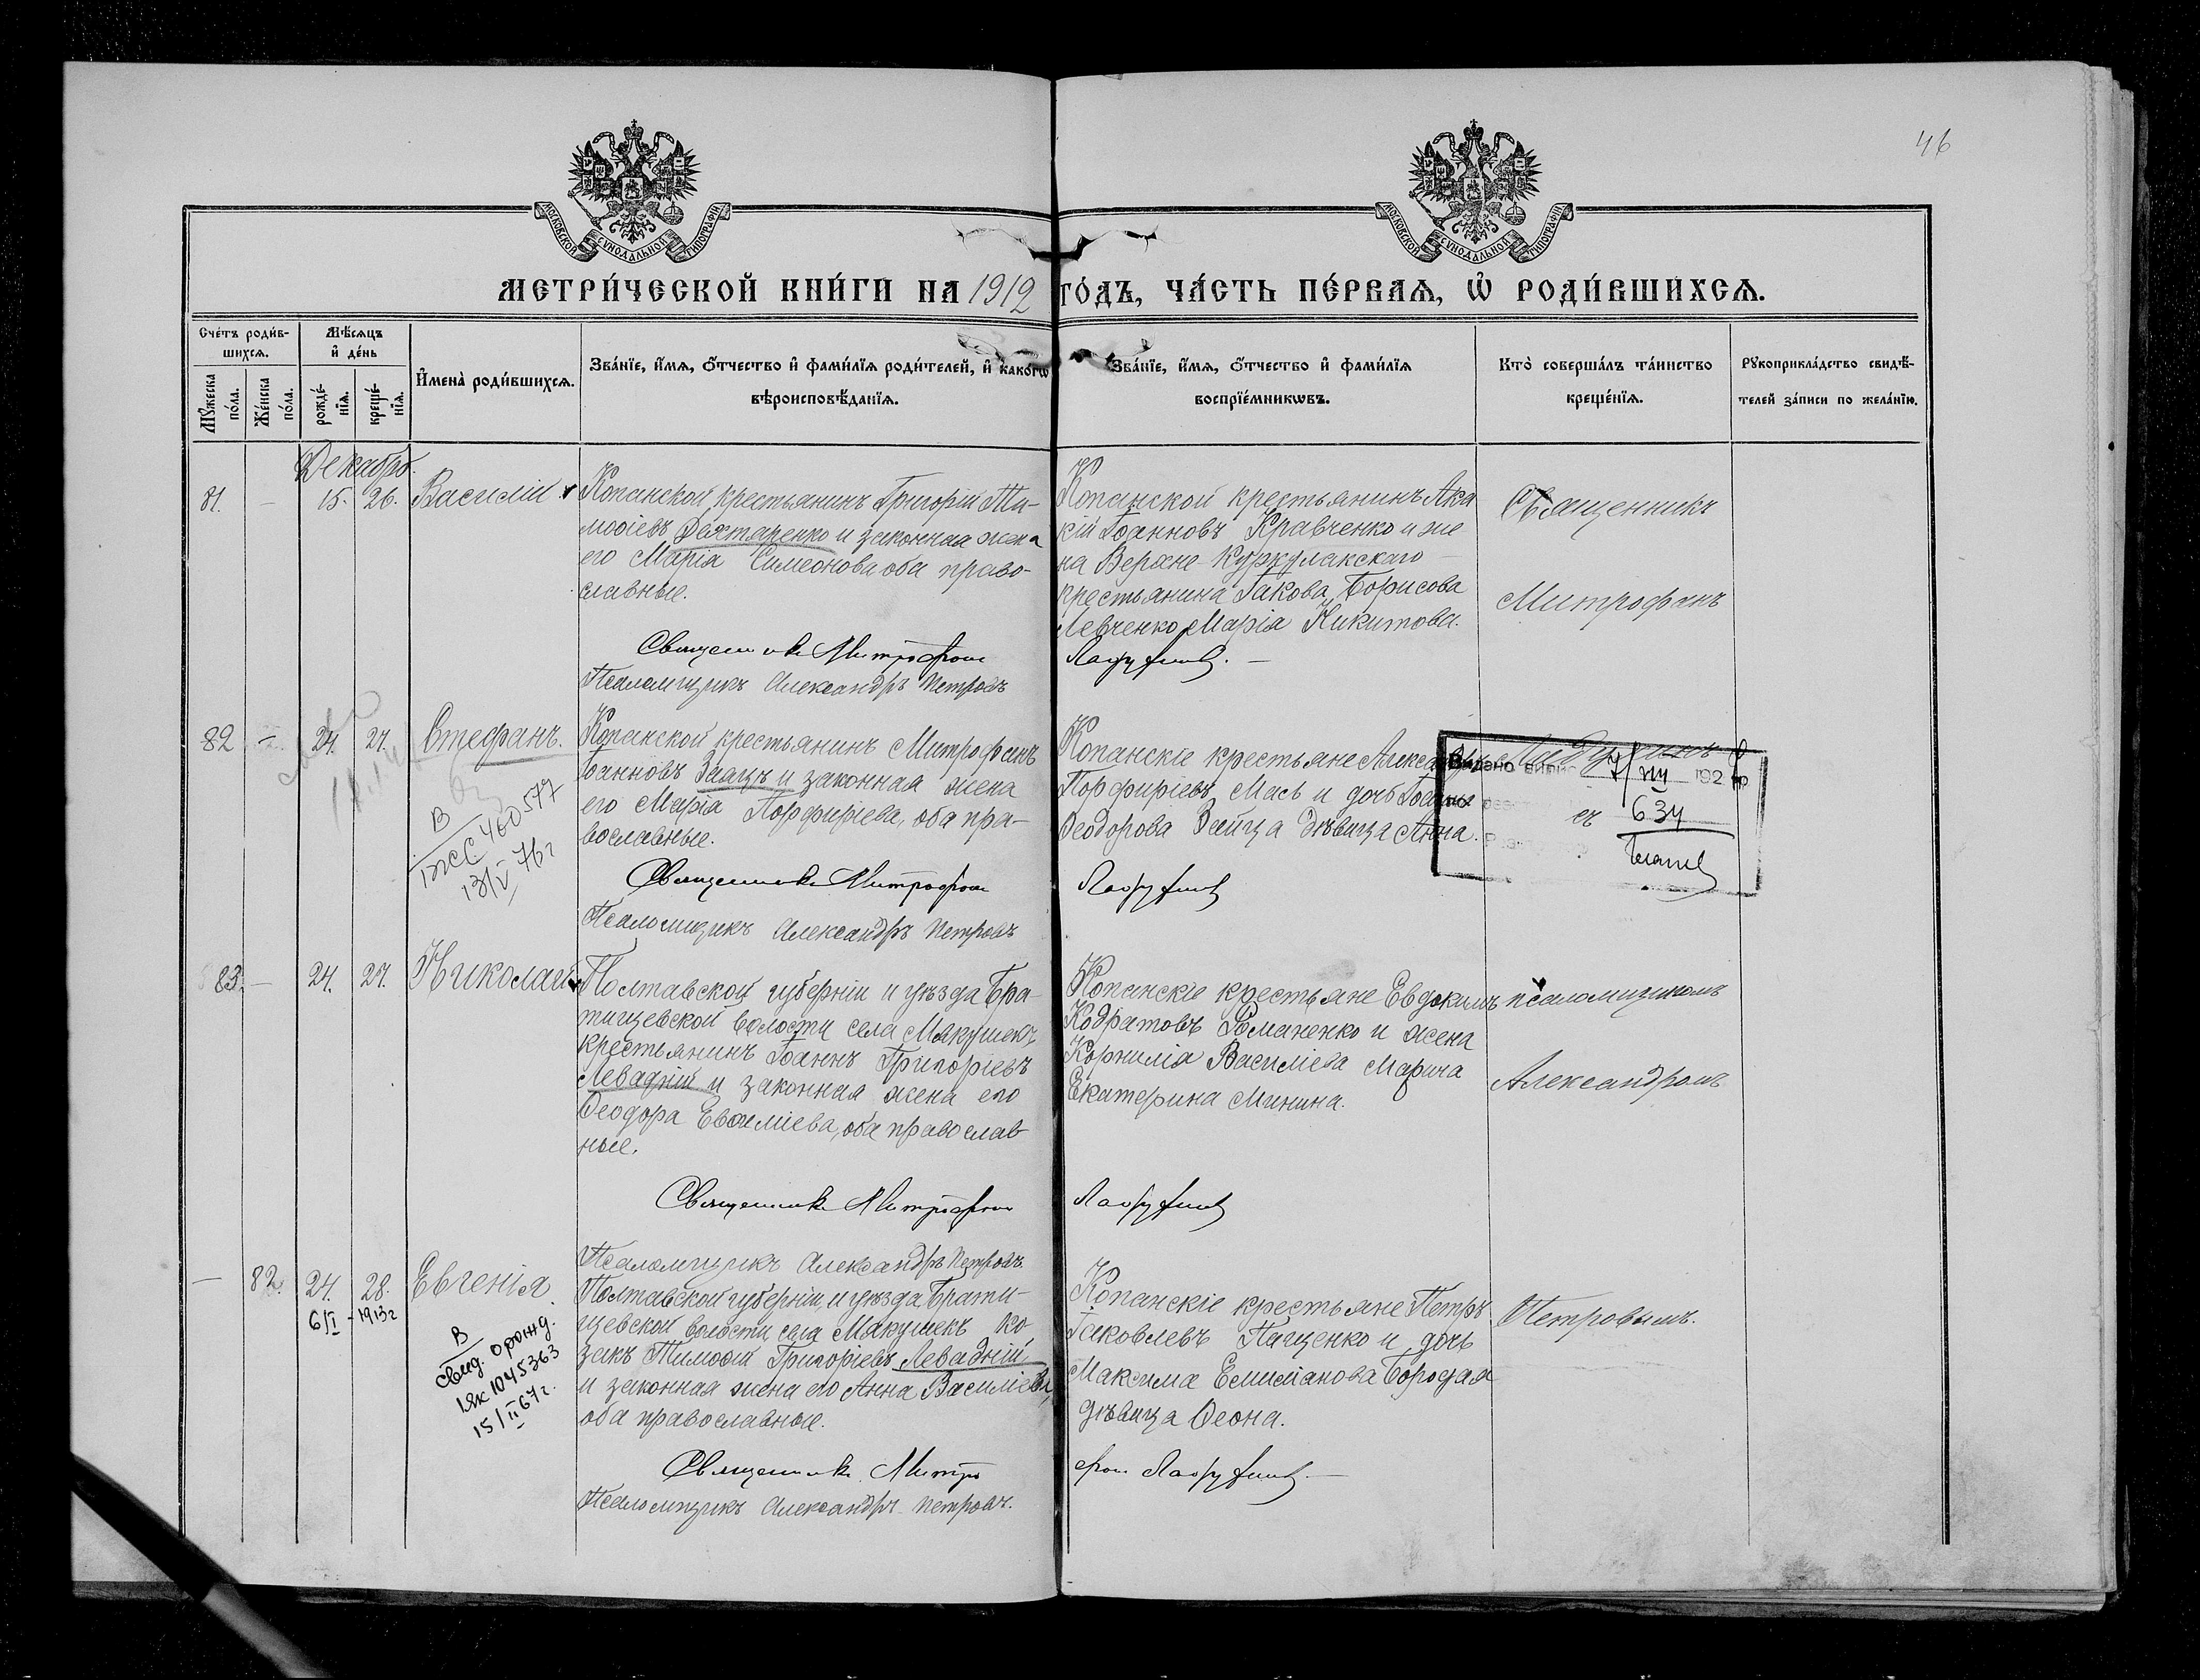 46
МОСКОВСКОЙ СѴНОДАЛЬНОЙ ТИПОГРАФІИ
МОСКОВСКОЙ СѴНОДАЛЬНОЙ ТИПОГРАФІИ
МЕТРИ́ЧЕСКОЙ КНИ́ГИ НА 1912 ГО́ДЪ, ЧА́СТЬ ПЕ́РВАЯ, Ѡ҆ РОДИ́ВШИХСЯ.
Сче́тъ роди́в-
шихся.
Мѣ́сяцъ
и҆ де́нь
Мꙋ́жеска по́ла.
Же́нска по́ла.
рожде́-
нїя.
креще́-
нїя.
И҆мена̀ роди́вшихся.
Зва́нїе, и҆́мя, о҆́тчество и҆ фами́лїя роди́телей, и҆ како́гѡ
вѣроисповѣ́данїя.
Зва́нїе, и҆́мя, о҆́тчество и҆ фами́лїя
воспрїе́мникѡвъ.
Кто̀ соверша́лъ та́инство
креще́нїя.
Рꙋкоприкла́дство свидѣ́-
телей за́писи по жела́нїю.
Декабрь.
81. - 15. 26. Василій
Копанской крестьянинъ Григорій Ти-
моѳіевъ Дехтаренко и законная жена
его Марія Симеонова оба право-
славные.
Священникъ Митрофанъ
Псаломщикъ Александръ Петровъ
Копанской крестьянинъ Ака
кій Іоанновъ Кравченко и же
на Верхне-Куркулакскаго
крестьянина Іакова Борисова
Левченко Марія Никитова.
Священникъ
Митрофанъ
82 - 24. 27. Стефанъ.
В
460577
13/V 76г
Копанской крестьянинъ Митрофанъ
Іоанновъ Заяцъ и законная жена
его Марія Порфиріева, оба пра-
вославные.
Священникъ Митрофанъ
Псаломщикъ Александръ Петровъ
Копанскіе крестьяне
Порфиріевъ Мась и дочь
Ѳеодорова Зайца дѣвица Анна.
Выдано
192
634
83. - 24. 27. Николай
Полтавской губерніи и уѣзда Бра-
тищевской волости села Макушекъ
крестьянинъ Іоаннъ Григоріевъ
Левадній и законная жена его
Ѳеодора Евѳиміева, оба православ
ные.
Священникъ Митрофанъ
Псаломщикъ Александръ Петровъ
Копанскіе крестьяне Евдокимъ
Кодратовъ Романенко и жена
Корнилія Василіева
Екатерина Минина.
псаломщикомъ
Александромъ
- 82. 24. 28. Евгенія
6/I - 1913г
В
свид. о рожд.
1045363
15/II 67г.
Полтавской губерніи, и уѣзда, Брати-
щевской волости, села Макушекъ ко
закъ Тимоѳій Григоріевъ Левадній
и законная жена его Анна Василіева,
оба православные.
Священникъ Митро
Псаломщикъ Александръ Петровъ.
Копанскіе крестьяне Петръ
Іаковлевъ Пащенко и дочь
Максима Емиліанова Бородая
дѣвица Ѳеона.
Петровымъ.